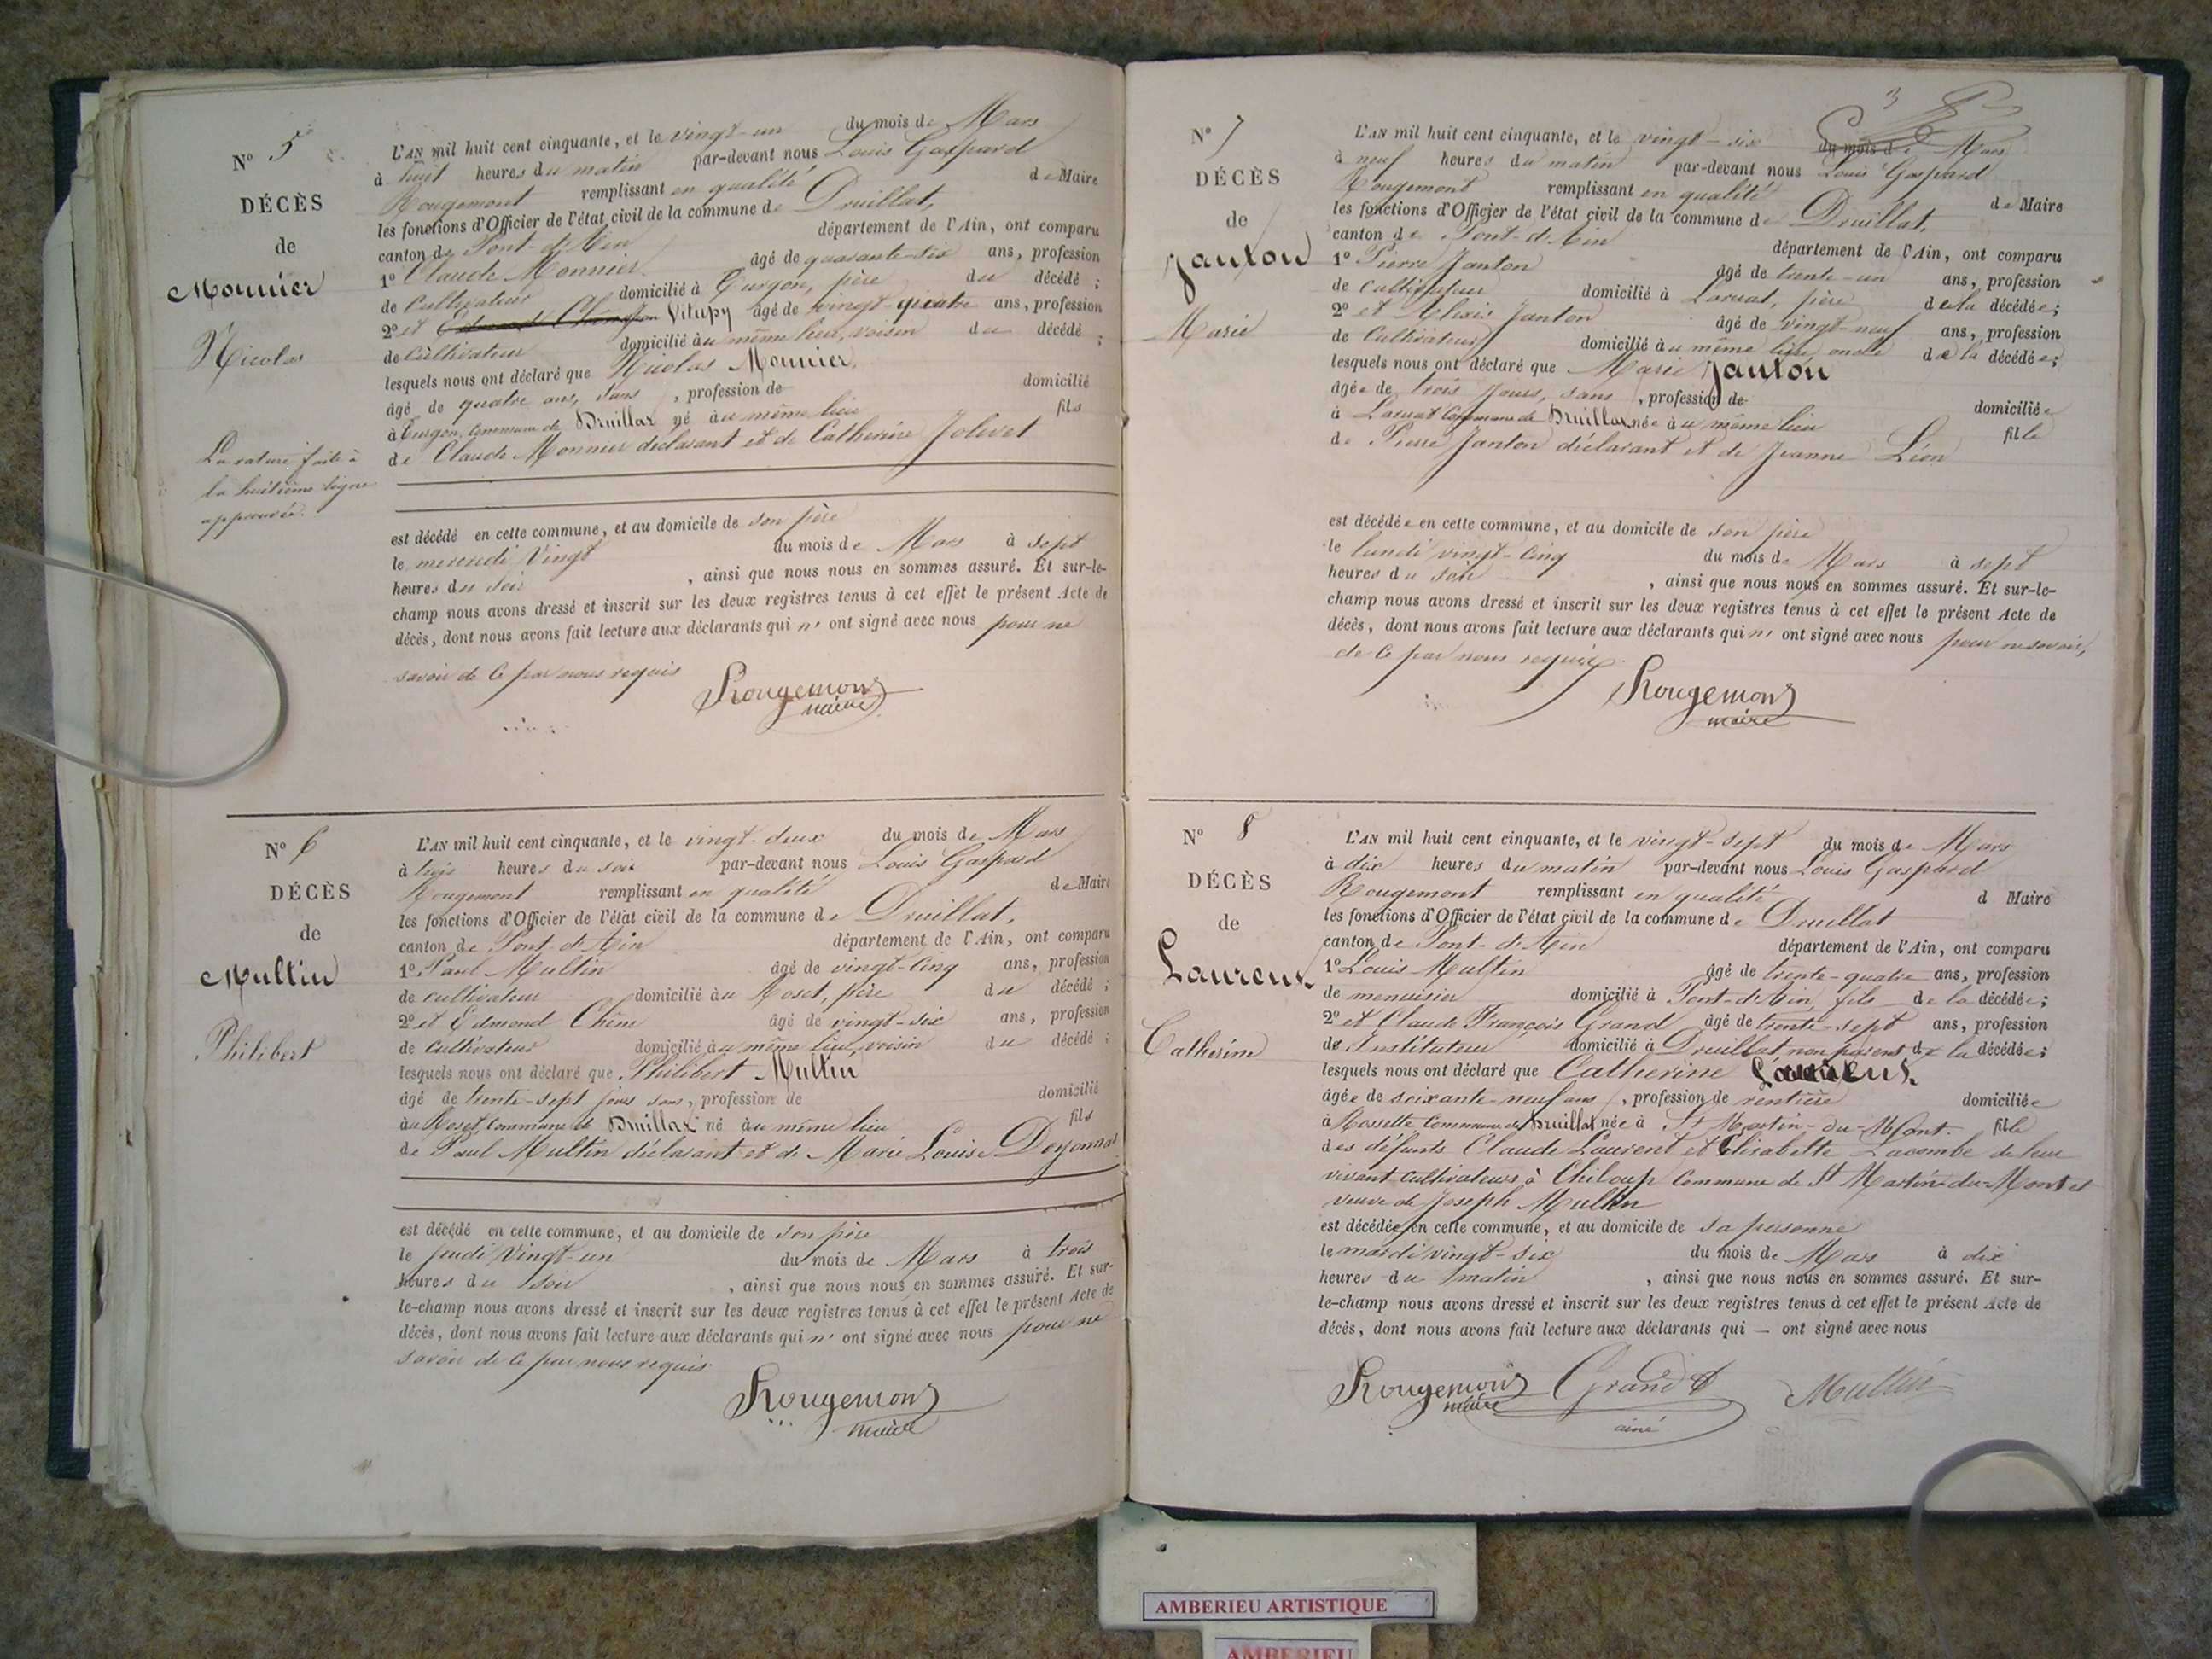 N° 5
DÉCÈS
de
Monnier
Nicolas
La rature faite à
la huitième ligne
approuvée.
L'AN mil huit cent cinquante, et le vingt-un du mois de Mars
à huit heures du matin par-devant nous Louis Gaspard
Rougemont remplissant en qualité de Maire
les fonctions d'Officier de l'état civil de la commune de Druillat,
canton de Pont-d'Ain département de l'Ain, ont comparu
1° Claude Monnier âgé de quarante-six ans, profession
de Cultivateur domicilié à Turgon, père du décédé ;
2° et Vitupy âgé de vingt-quatre ans, profession
de Cultivateur domicilié au même lieu, voisin du décédé ;
lesquels nous ont déclaré que Nicolas Monnier,
âgé de quatre ans, sans , profession de domicilié
à Turgon, Commune de Druillat né au même lieu fils
de Claude Monnier déclarant et de Catherine Jolivet
est décédé en cette commune, et au domicile de son père
le mercredi Vingt du mois de Mars à sept
heures du soir , ainsi que nous nous en sommes assuré. Et sur-le-
champ nous avons dressé et inscrit sur les deux registres tenus à cet effet le présent Acte de
décès, dont nous avons fait lecture aux déclarants qui n' ont signé avec nous pour ne
savoir de ce par nous requis
Rougemont
maire
N° 6
DÉCÈS
de
Multin
Philibert
L'AN mil huit cent cinquante, et le vingt-deux du mois de Mars
à trois heures du soir par-devant nous Louis Gaspard
Rougemont remplissant en qualité de Maire
les fonctions d'Officier de l'état civil de la commune de Druillat,
canton de Pont-d'Ain département de l'Ain, ont comparu
1° Paul Multin âgé de vingt-cinq ans, profession
de cultivateur domicilié au Roset, père du décédé ;
2° et Edmond Chêne âgé de vingt-six ans, profession
de Cultivateur domicilié au même lieu, voisin du décédé ;
lesquels nous ont déclaré que Philibert Multin
âgé de trente-sept jours sans, profession de domicilié
au Roset, Commune de Druillat né au même lieu fils
de Paul Multin déclarant et de Marie Louise
est décédé en cette commune, et au domicile de son père
le jeudi Vingt-un du mois de Mars à trois
heures du soir , ainsi que nous nous en sommes assuré. Et sur-
le-champ nous avons dressé et inscrit sur les deux registres tenus à cet effet le présent Acte de
décès, dont nous avons fait lecture aux déclarants qui n' ont signé avec nous pour ne
savoir de ce par nous requis
Rougemont
maire
3
N° 7
DÉCÈS
de
Janton
Marie
L'AN mil huit cent cinquante, et le vingt-six du mois de Mars
à neuf heures du matin par-devant nous Louis Gaspard
Rougemont remplissant en qualité de Maire
les fonctions d'Officier de l'état civil de la commune de Druillat,
canton de Pont-d'Ain département de l'Ain, ont comparu
1° Pierre Janton âgé de trente-un ans, profession
de Cultivateur domicilié à Larnat, père de la décédée ;
2° et Alexis Janton âgé de vingt-neuf ans, profession
de Cultivateur domicilié au même lieu, oncle de la décédée ;
lesquels nous ont déclaré que Marie Janton
âgée de trois jours, sans , profession de domiciliée
à Larnat Commune de Druillat née au même lieu fille
de Pierre Janton déclarant et de Jeanne Léon
est décédée en cette commune, et au domicile de son père
le lundi vingt-cinq du mois de Mars à sept
heures du soir , ainsi que nous nous en sommes assuré. Et sur-le-
champ nous avons dressé et inscrit sur les deux registres tenus à cet effet le présent Acte de
décès, dont nous avons fait lecture aux déclarants qui n' ont signé avec nous pour ne savoir,
de ce par nous requis.
Rougemont
maire
N° 8
DÉCÈS
de
Laurent
Catherine
L'AN mil huit cent cinquante, et le vingt-sept du mois de Mars
à dix heures du matin par-devant nous Louis Gaspard
Rougemont remplissant en qualité d Maire
les fonctions d'Officier de l'état civil de la commune de Druillat
canton de Pont-d'Ain département de l'Ain, ont comparu
1° Louis Multin âgé de trente-quatre ans, profession
de menuisier domicilié à Pont-d'Ain, fils de la décédée ;
2° et Claude François Grand âgé de trente-sept ans, profession
de Instituteur domicilié à Druillat, non parent de la décédée ;
lesquels nous ont déclaré que Catherine Laurent.
âgée de soixante-neuf ans , profession de rentière domiciliée
à Rossette Commune de Druillat née à St Martin-du-Mont. fille
des défunts Claude Laurent et Elisabette Lacombe de leur
vivant cultivateurs à Chiloup Commune de St Martin-du-Mont et
veuve de Joseph Multin
est décédée en cette commune, et au domicile de sa personne
le mardi vingt-six du mois de Mars à dix
heures du matin , ainsi que nous nous en sommes assuré. Et sur-
le-champ nous avons dressé et inscrit sur les deux registres tenus à cet effet le présent Acte de
décès, dont nous avons fait lecture aux déclarants qui — ont signé avec nous
Rougemont Grand Multin
maire
ainé
AMBERIEU ARTISTIQUE
AMBERIEU